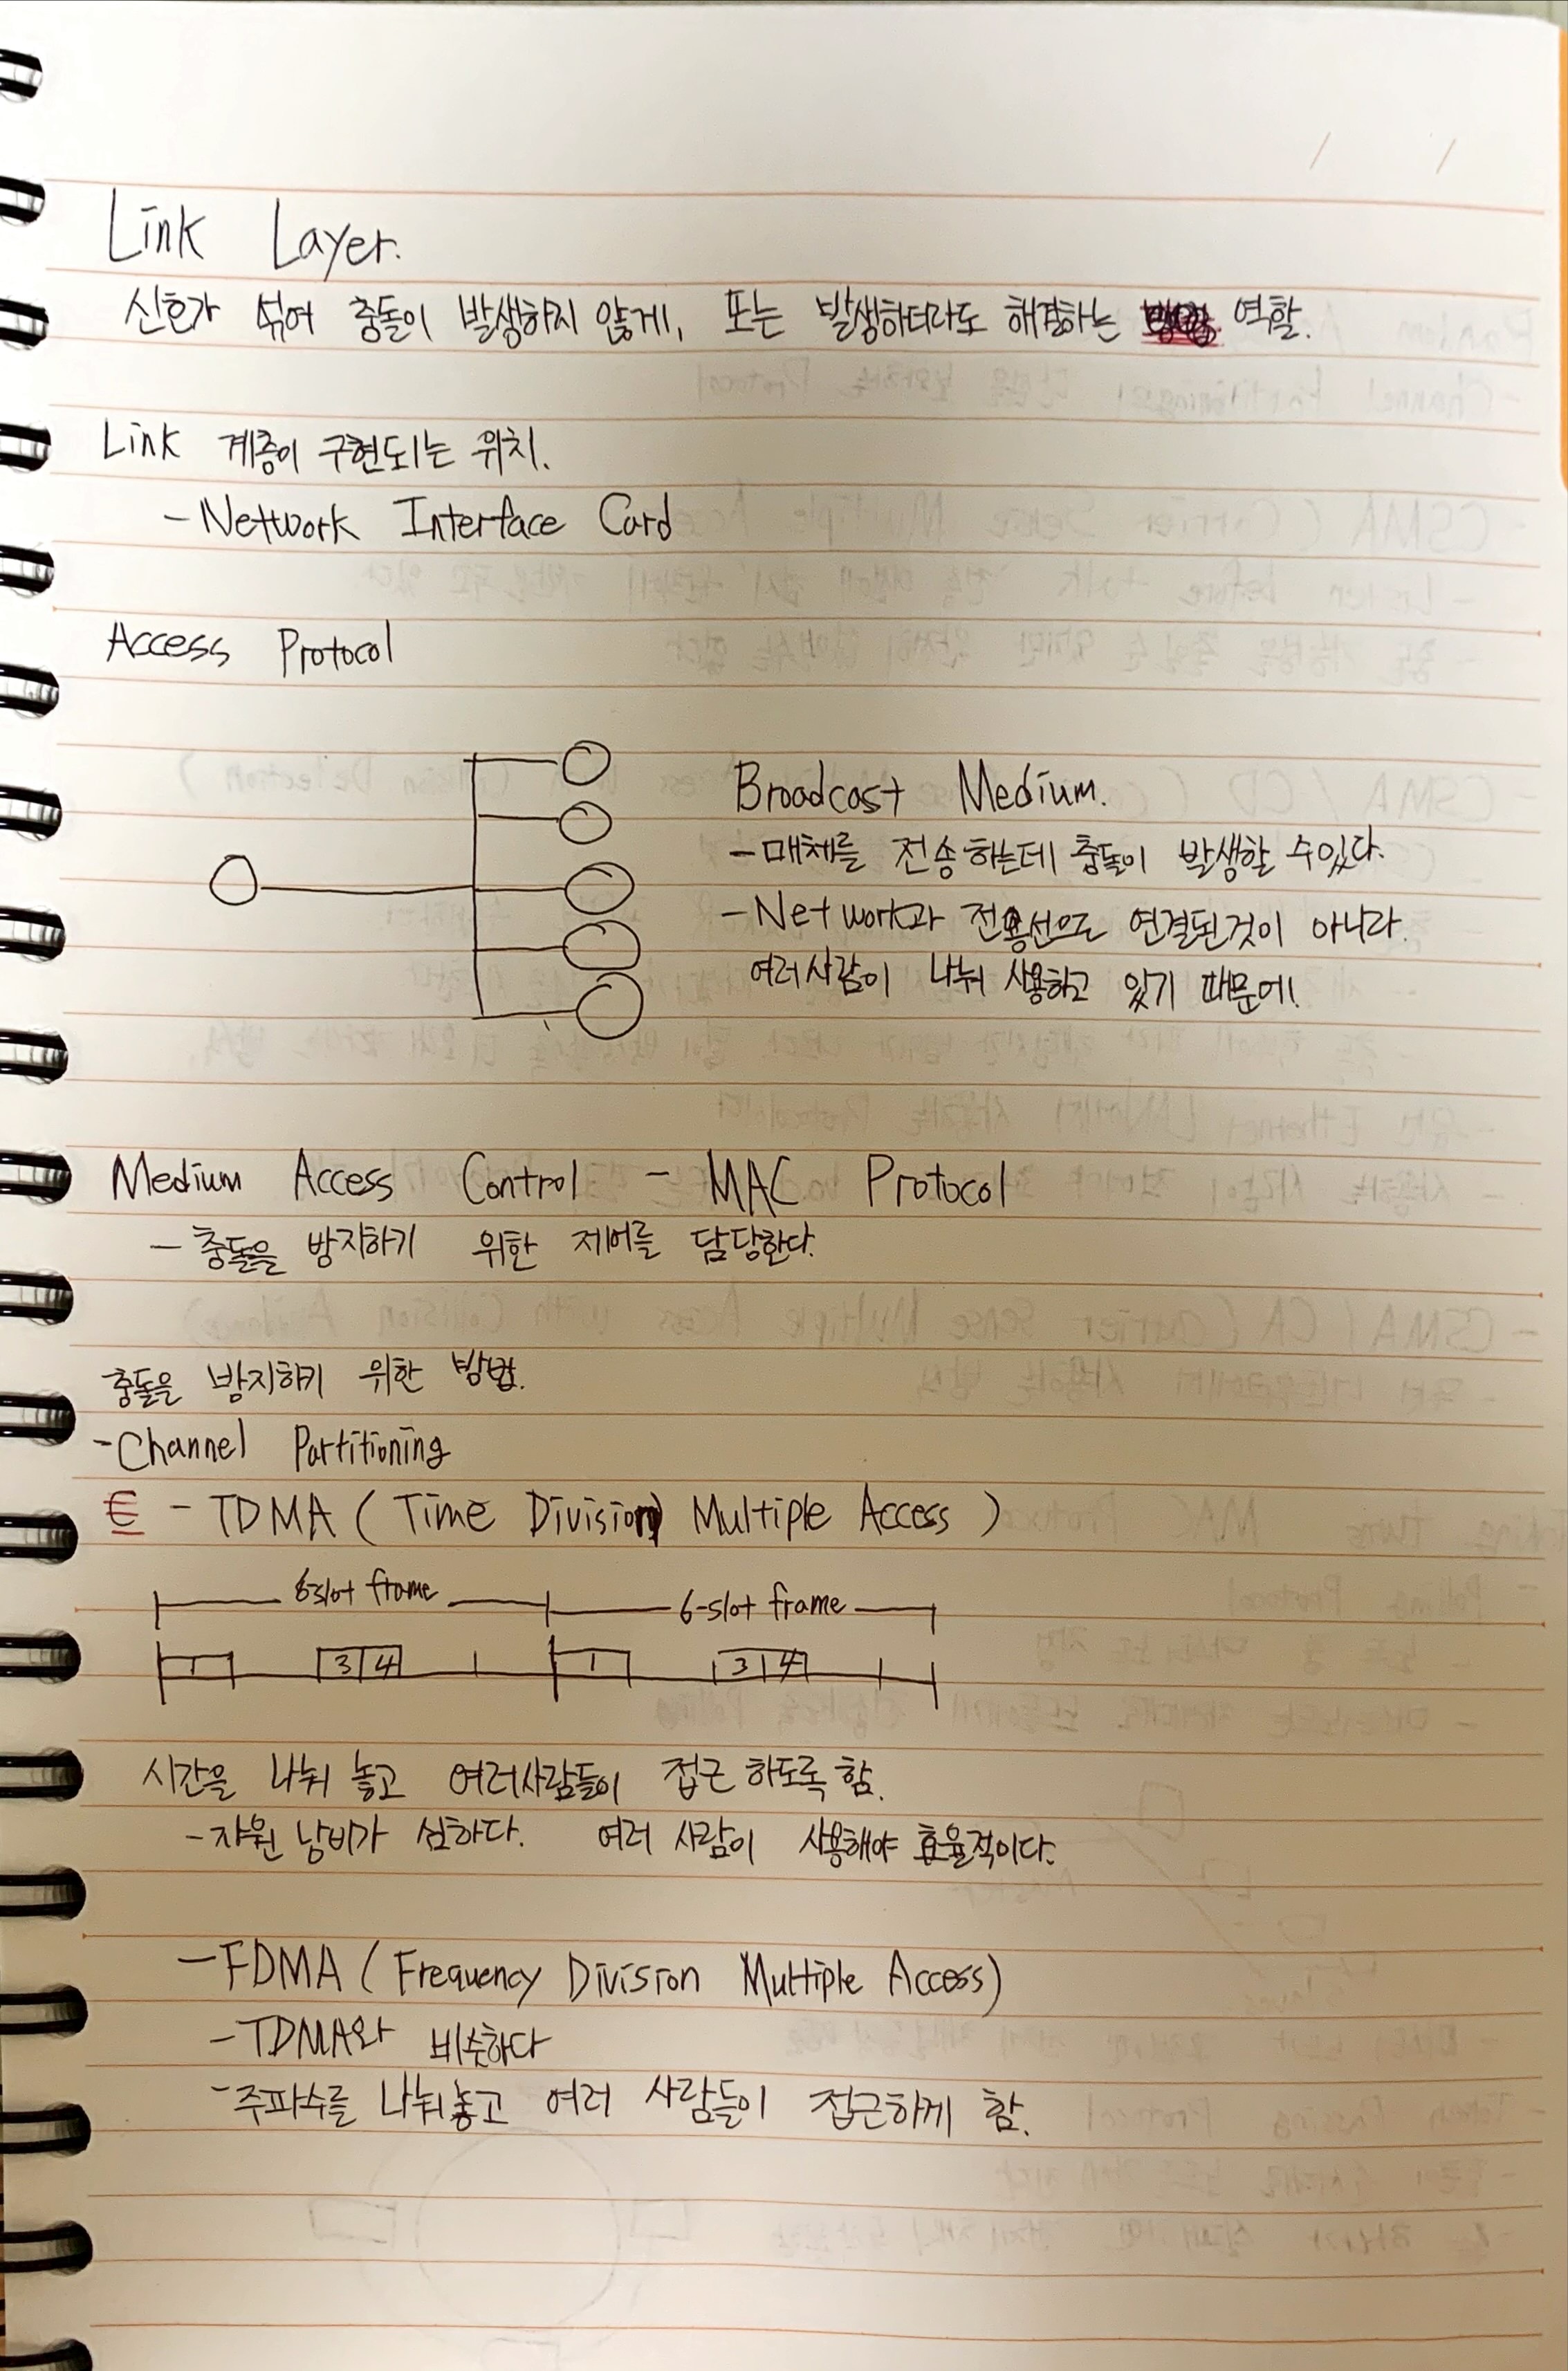 Link Layer.
신호가 섞여 충돌이 발생하지 않게, 또는 발생하더라도 해결하는 역할.
Link 계층이 구현되는 위치.
- Network Interface Card
Access Protocol
Broadcast Medium.
- 매체를 전송하는데 충돌이 발생할 수있다.
- Network과 전용선으로 연결된것이 아니라
여러사람이 나눠 사용하고 있기 때문에!
Medium Access Control - MAC Protocol
- 충돌을 방지하기 위한 제어를 담당한다.
충돌을 방지하기 위한 방법.
- Channel Partitioning
€ - TDMA ( Time Division Multiple Access )
6-slot frame 6-slot frame
1 3 4 1 3 4
시간을 나눠 놓고 여러사람들이 접근 하도록 함.
- 자원 낭비가 심하다. 여러 사람이 사용해야 효율적이다.
- FDMA ( Frequency Division Multiple Access)
- TDMA와 비슷하다
- 주파수를 나눠놓고 여러 사람들이 접근하게 함.